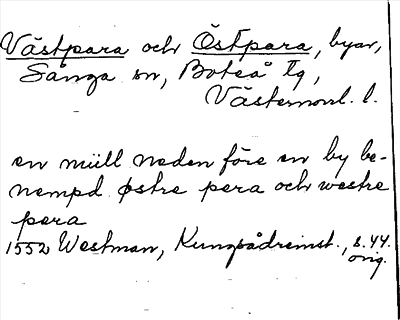 Västpara och Östpara, byar,
Sånga sn, Boteå tg,
Västernorrl. l.
en miill neden före en by be-
nempd østre pera och westre
pera
1552 Westman, Kungsådreinst., s. 44.
orig.